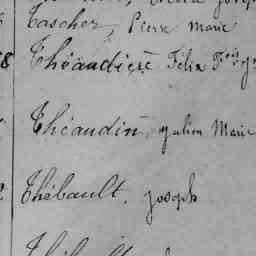 Tascher, Pierre Marie
8 Théaudière Félix Fçois
Théaudin, Julien Marie
Thébault, Joseph